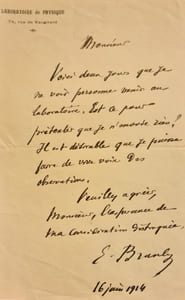 LABORATOIRE de PHYSIQUE
74, rue de Vaugirard
Monsieur
Voici deux jours que je
ne vois personne venir au
laboratoire. Est ce pour
que je n'insiste rien?
Il est désirable que je puisse
faire de vive voix des
observations.
Veuillez agréer,
Monsieur, l'expression de
ma considération distinguée,
E. Branly
16 juin 1914